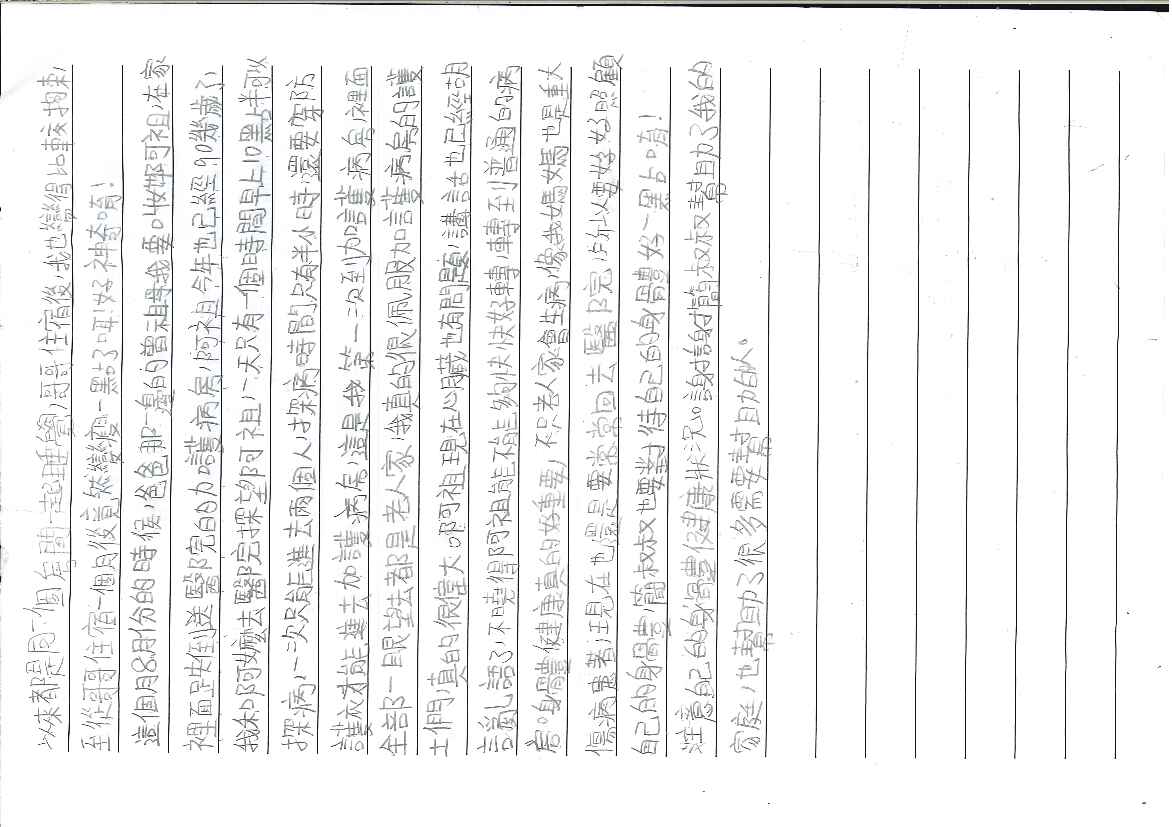 以來都是同一個房間一起睡覺，哥哥住宿後，我也變得比較拘束，
至從哥哥住宿一個月後竟然變瘦一點了耶！好神奇唷！
這個月8月份的時候，爸爸那一邊的曾祖母我要叫做阿祖，在家
裡面跌倒送醫院的加護病房，阿祖今年也已經90幾歲了，
我和阿嬤去醫院探望阿祖，一天只有一個時間早上10點半可以
探病，一次只能進去兩個人，探病時間只有半小時，還要穿防
護衣才能進去加護病房，這是我第一次到加護病房，裡面
全部一眼望去都是老人家，我真的很佩服加護病房的護
士們，真的很偉大。阿祖現在心臟也有問題，講話也已經胡
言亂語了，不曉得阿祖能不能夠快快好轉，轉到普通的病
房。身體健康真的好重要，不只老人家會生病，像我媽媽也是重大
傷病患者，現在也還是要常常回去醫院，所以要好好照顧
自己的身體，簡叔叔也要對待自己的身體好一點占唷！
注意自己的身體健康狀況。謝謝簡叔叔幫助了我的
家庭，也幫助了很多需要幫助的人。